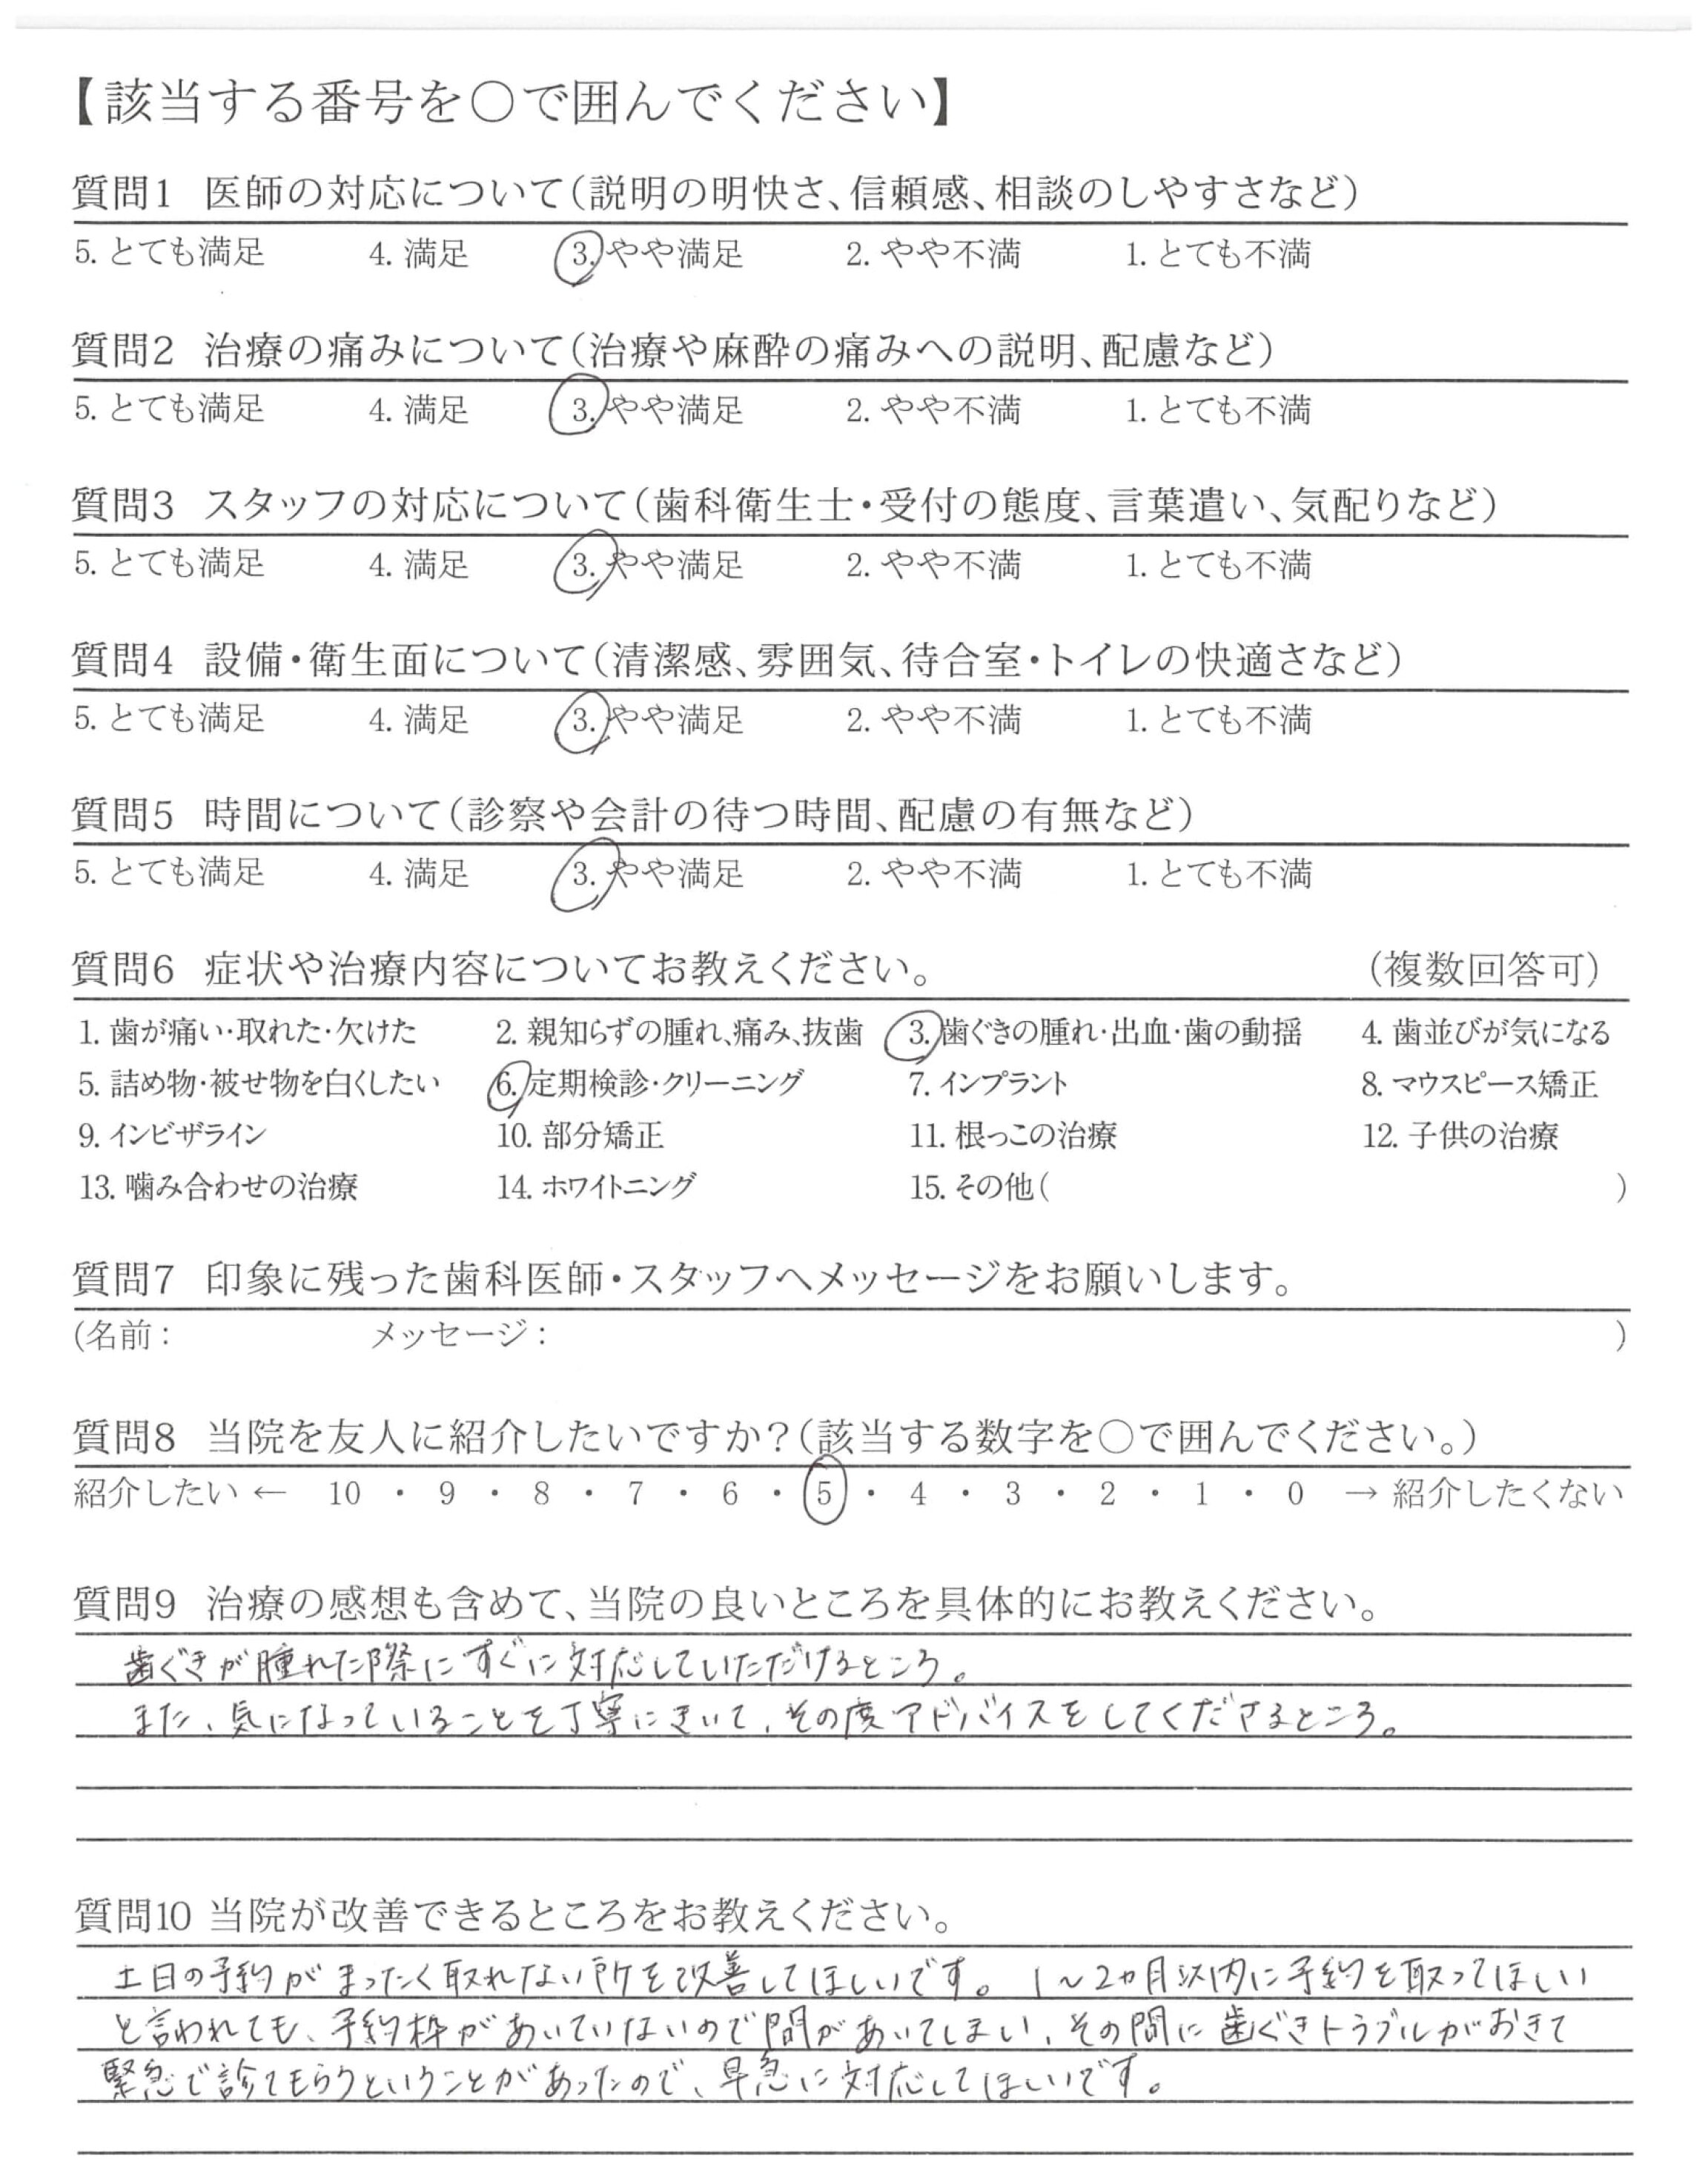 【該当する番号を○で囲んでください】
質問1 医師の対応について(説明の明快さ、信頼感、相談のしやすさなど)
5. とても満足 4. 満足 3. やや満足 2. やや不満 1. とても不満
質問2 治療の痛みについて(治療や麻酔の痛みへの説明、配慮など)
5. とても満足 4. 満足 3. やや満足 2. やや不満 1. とても不満
質問3 スタッフの対応について(歯科衛生士・受付の態度、言葉遣い、気配りなど)
5. とても満足 4. 満足 3. やや満足 2. やや不満 1. とても不満
質問4 設備・衛生面について(清潔感、雰囲気、待合室・トイレの快適さなど)
5. とても満足 4. 満足 3. やや満足 2. やや不満 1. とても不満
質問5 時間について(診察や会計の待つ時間、配慮の有無など)
5. とても満足 4. 満足 3. やや満足 2. やや不満 1. とても不満
質問6 症状や治療内容についてお教えください。 (複数回答可)
1. 歯が痛い・取れた・欠けた 2. 親知らずの腫れ、痛み、抜歯 3. 歯ぐきの腫れ・出血・歯の動揺 4. 歯並びが気になる
5. 詰め物・被せ物を白くしたい 6. 定期検診・クリーニング 7. インプラント 8. マウスピース矯正
9. インビザライン 10. 部分矯正 11. 根っこの治療 12. 子供の治療
13. 噛み合わせの治療 14. ホワイトニング 15. その他( )
質問7 印象に残った歯科医師・スタッフへメッセージをお願いします。
(名前: メッセージ: )
質問8 当院を友人に紹介したいですか?(該当する数字を○で囲んでください。)
紹介したい ← 10 ・ 9 ・ 8 ・ 7 ・ 6 ・ 5 ・ 4 ・ 3 ・ 2 ・ 1 ・ 0 → 紹介したくない
質問9 治療の感想も含めて、当院の良いところを具体的にお教えください。
歯ぐきが腫れた際にすぐに対応していただけるところ。
また、気になっていることを丁寧にきいて、その度アドバイスをしてくださるところ。
質問10 当院が改善できるところをお教えください。
土日の予約がまったく取れない所を改善してほしいです。1～2ヵ月以内に予約を取ってほしい
と言われても、予約枠があいていないので間があいてしまい、その間に歯ぐきトラブルがおきて
緊急で診てもらうということがあったので、早急に対応してほしいです。